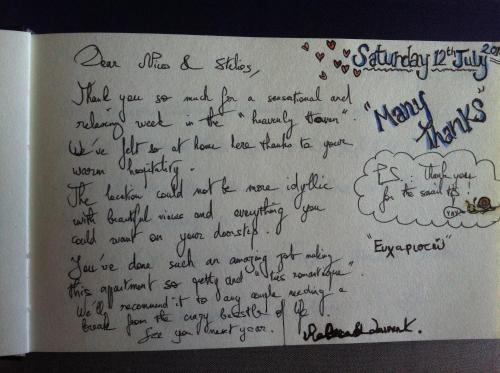 Saturday 12th July
Dear Nico & Stelios,
Thank you so much for a sensational and
relaxing week in the "heavenly Haven".
We've felt so at home here thanks to your
warm hospitality.
The location could not be more idyllic
with beautiful views and everything you
could want on your doorstep.
You've done such an amazing job making
this apartment so pretty and "très romantique".
We'll recommend it to any couple needing a
break from the crazy beastle of life.
See you next year.
"Many
Thanks"
P.S.: Thank you
for the snail tip!
YAY
"Ευχαριστώ"
Rebecca & Laurent.